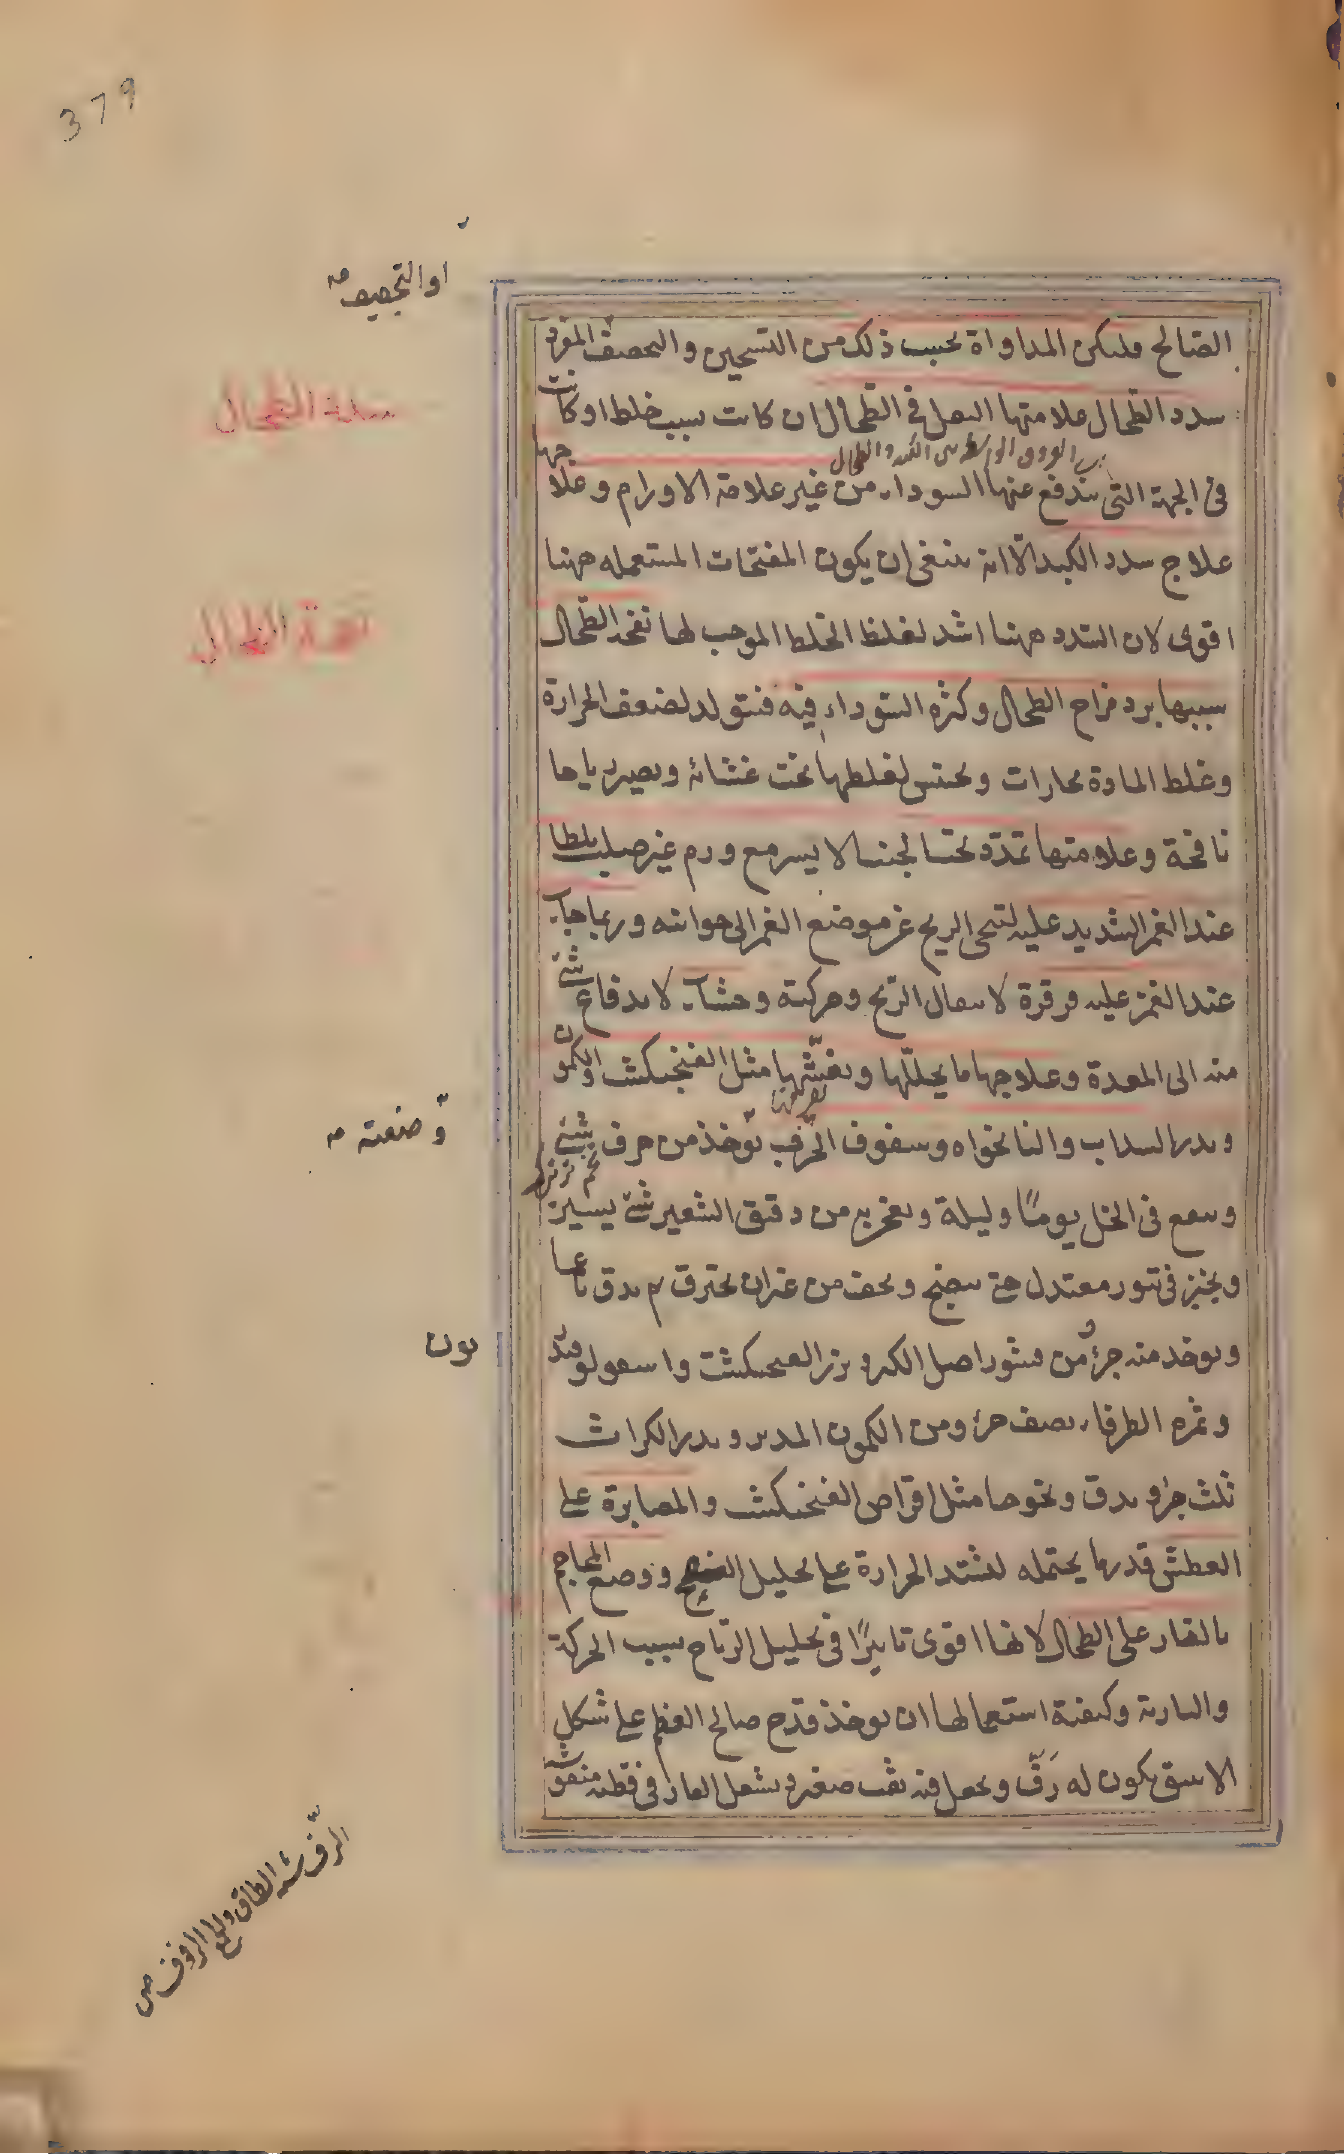 379
او التجفيف صح
الصالح وليكن المداواة بحسب ذلك من التسخين والتجفيف المفرد
سدة الطحال
سدد الطحال علامتها الثقل في الطحال ان كانت بسبب خلط او كانت
في الجهة التي يندفع عنها السوداء من غير علامة الاورام وعلاجها
علاج سدد الكبد الا انه ينبغي ان يكون المفتحات المستعمله ههنا
اقوى لان السدد ههنا اشد لغلظ الخلط الموجب لها نفخة الطحال
نفخة الطحال
سببها برد مزاج الطحال وكثرة السوداء فيه فتتولد لضعف الحرارة
وغلظ المادة بخارات ويحتبس لغلظها تحت غشائه ويصير رياحا
نافخة وعلامتها تمدد تحت الجنب الايسر مع ورم غير صلب يلطا
عند الغمز الشديد عليه لتنحى الريح عن موضع الغمز الى جوانبه وربما جاء
عند الغمز عليه قرقرة لانتقال الريح وحركته وجشاء لاندفاع شئ
منه الى المعدة وعلاجها ما يحللها ويفشها مثل الفنجنكشت والكمون
وبزر السداب والنانخواه وسفوف الحرف يؤخذ من حرف شئ
وصنعته صح
وينقع في الخل يوما وليلة ويعجن به من دقيق الشعير شئ يسير
ويخبز في تنور معتدل حتى ينضج ويجف من غير ان يحترق ثم يدق ناعما
ويوخذ منه جزء ومن قشور اصل الكبر وبزر الفنجنكشت واسقولوقند
يون
وثمره الطرفاء نصف جزء ومن الكمون المدبر وبزر الكراث
ثلث جزء ويدق ونحوها مثل اقراص الفنجنكشت والمصابرة على
العطش قدر ما يحتمله لتشتد الحرارة على تحليل النفخ ووضع المحاجم
بالنار على الطحال لانها اقوى تاثيرا في تحليل الرياح بسبب الحركة
والنارية وكيفية استعمالها ان يوخذ قدح صالح العظم على شكل
يكون له رف ويجعل فيه ثقب صغير ويشعل النار في قطنه منفوشة
الرف شبه الطاق والجمع الرفوف ص